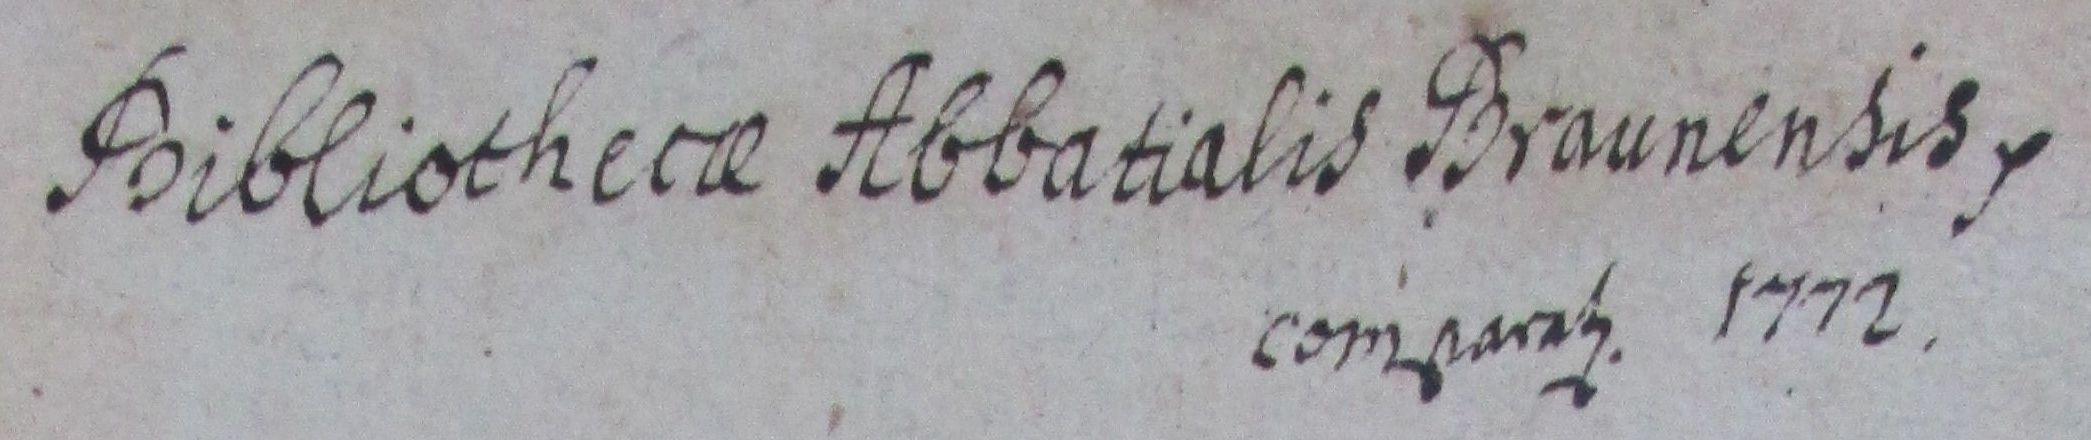 Bibliothecæ Abbatialis Braunensis,
comparatꝫ. 1772.